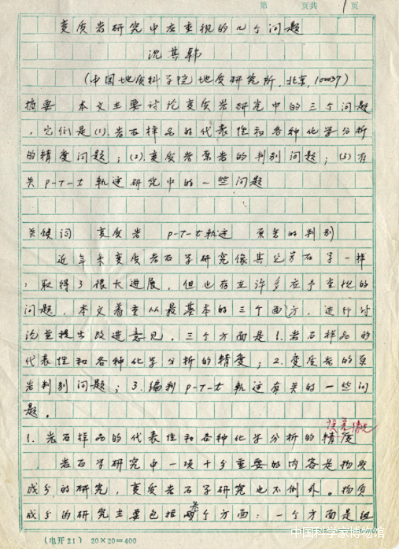 第 页共 1 页
变质岩研究中应重视的几个问题
沈其韩
(中国地质科学院地质研究所,北京,100037)
摘要 本文主要讨论变质岩研究中的三个问题
,它们是(1)岩石样品的代表性和各种化学分析
的精度问题;(2)变质岩原岩的判别问题;(3)有
关P-T-t轨迹研究中的一些问题
关键词 变质岩 P-T-t轨迹 原岩的判别
近年来变质岩石学研究像其它岩石学一样
,取得了很大进展,但也存在许多应予重视的
问题,本文着重从最基本的三个方面,进行讨
论并提出改进意见,三个方面是1.岩石样品的
代表性和各种化学分析的精度;2.变质岩的原
岩判别问题;3.编制P-T-t轨迹有关的一些问
题。
1.岩石样品的代表性和各种化学分析的精度
岩石学研究中一项十分重要的内容是物质
成分的研究,变质岩石学研究也不例外。物质
成分的研究主要包括两个方面:一个方面是组
(电开21) 20×20=400
中国科学家博物馆